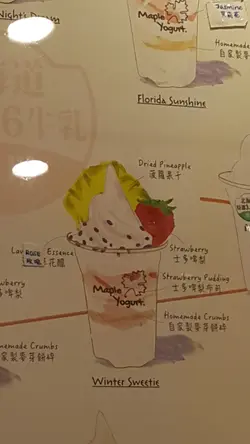 Night's Dream
Jasmine
Maple
Yogurt.
Homemade
自家製麥
Florida Sunshine
道
6牛乳
Dried Pineapple
菠蘿素干
Essence
花醋
Strawberry
士多啤梨
Maple
Yogurt.
Strawberry Pudding
士多啤梨布甸
Homemade Crumbs
自家製麥芽餅碎
wberry
啤梨
omemade Crumbs
家製麥芽餅碎
Winter Sweetie